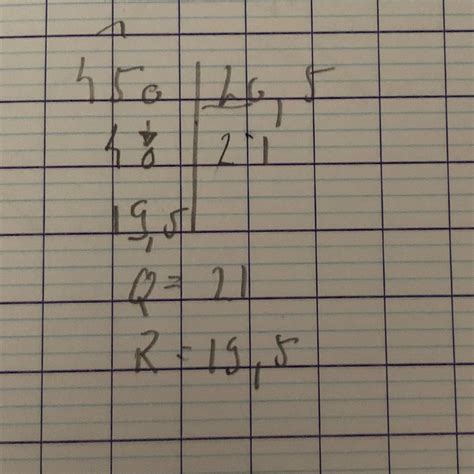 450 20,5
40 21
19,5
Q = 21
R = 19,5